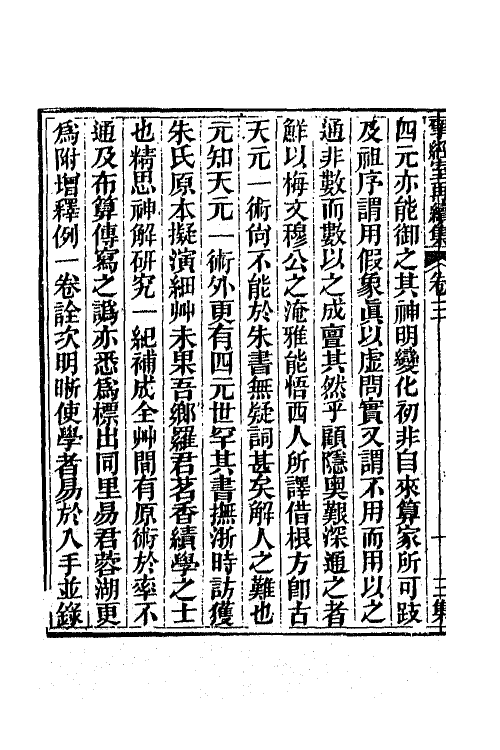 揅經室再續集 卷三 十 三集
四元亦能御之其神明變化初非自來算家所可跂
及祖序謂用假象眞以虛問實又謂不用而用以之
通非數而數以之成亶其然乎顧隱奧艱深通之者
鮮以梅文穆公之淹雅能悟西人所譯借根方卽古
天元一術尙不能於朱書無疑詞甚矣解人之難也
元知天元一術外更有四元世罕其書撫浙時訪獲
朱氏原本擬演細艸未果吾鄉羅君茗香績學之士
也精思神解硏究一紀補成全艸間有原術於率不
通及布算傳寫之譌亦悉爲標出同里易君蓉湖更
爲附增釋例一卷詮次明晰使學者易於入手並錄